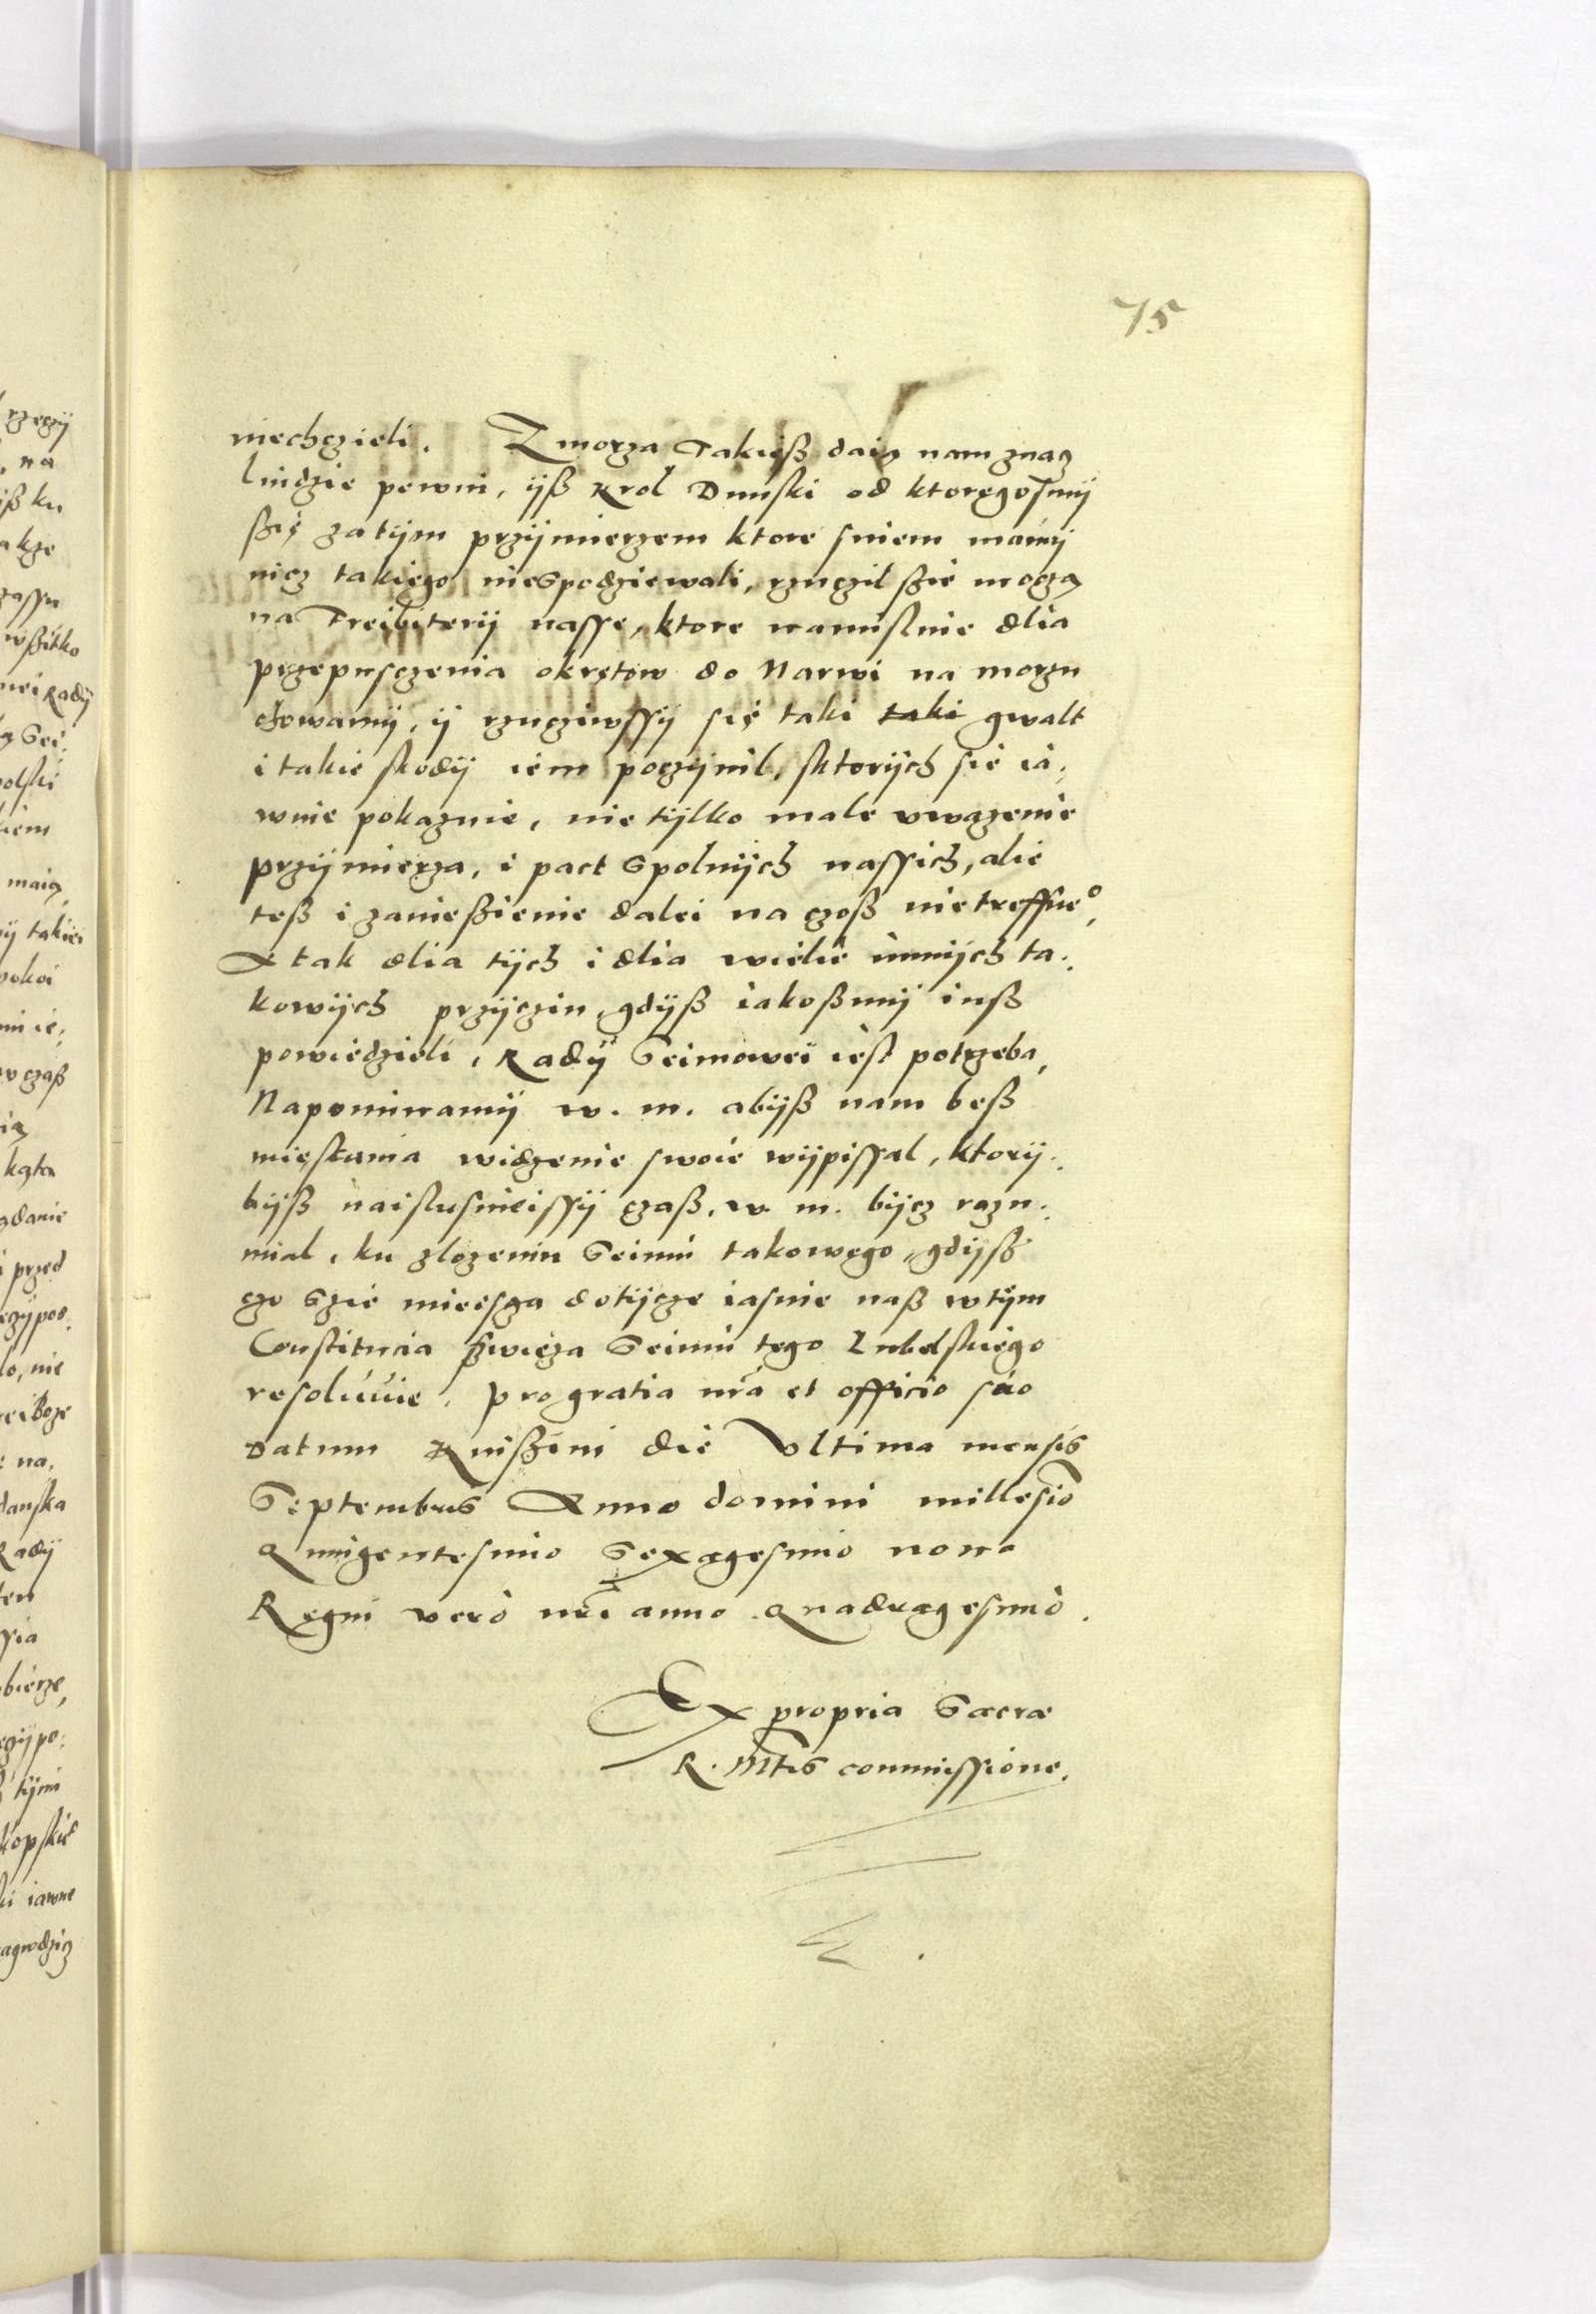 75
niechczieli. Z morza Takiesz daią nam znacz
liudzie pewni, ijß Krol Dunski od ktoregosmÿ
ßię zatÿm przÿmierzem ktore sniem mamÿ
nicz takiego niespodziewali, rzuczil ßie moczą
na Freibiterÿ nasse, ktore namislnie dlia
przepusczenia okrętow do Narwi na morzu
chowamÿ, ÿ rzucziwssÿ się taki taki gwalt
i takie skodÿ iem poczÿnil, sktorÿch sie ia:
wnie pokazuie, nie tÿlko male vwazenie
przÿmierza, i pact spolnÿch nassich, alie
teß i zanießienie dalei na czoß nietreffne°,
A tak dlia tÿch i dlia wielie innÿch ta:
kowÿch przÿczin, gdÿß iakoßmÿ inß
powiedzieli, Radÿ Seimowei iest potrzeba,
Napominamÿ w. m. abÿß nam beß
mieskania widzenie swoie wÿpissal, ktorÿ:
bÿß naislusneissÿ czaß, w. m. bÿcz rozu:
mial, ku zlozeniu Seimu takowego, gdÿß
czo szie miescza dotÿcze iasnie naß wtÿm
Constitucia ßwieza Seimu tego Lubelskiego
resoluuie, pro gratia nr̃a et officio suo
Datum Knißini die Vltima mensis
Septembris Anno domini millesio
Quingentesimo Sexagesimo nono
Regni vero nr̃i anno Quadragesimo.
Ex propria Sacræ
R. Mtis commissione.